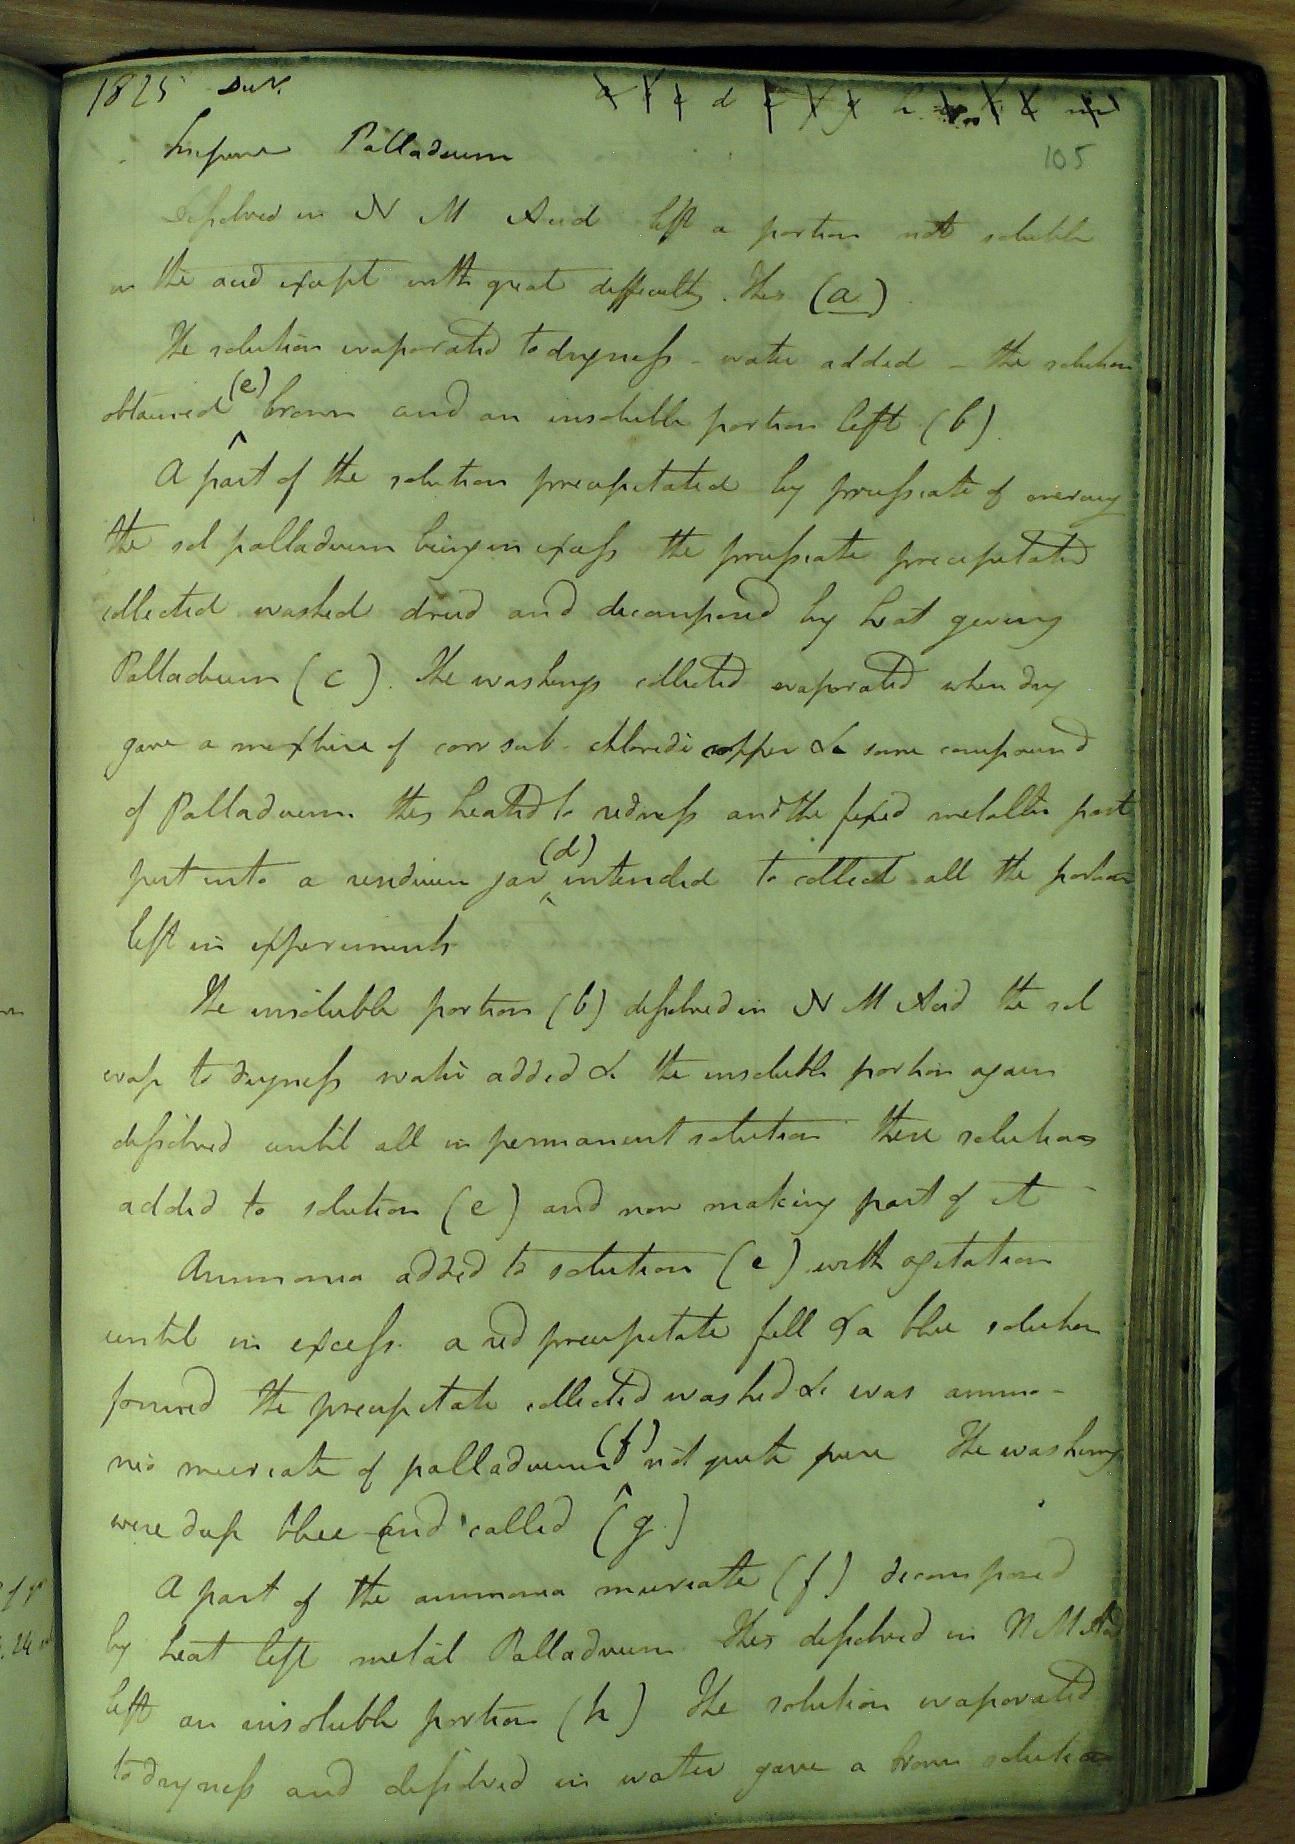 1825 Decr.
a b c d e f g h i k l m
105
Impure Palladium
Dissolved in N M Acid left a portion not soluble
in the acid except with great difficulty. this (a)
The solution evaporated to dryness - water added - the solution
obtained (e) brown and an insoluble portion left (b).
A part of the solution precipitated by prussiate of mercury
the sol palladium being in excess the prussiate precipitated
collected washed dried and decomposed by heat giving
Palladium (c). The washings collected evaporated when dry
gave a mixture of corr sub. chloride copper & some compound
of Palladium this heated to redness and the fixed metallic part
put into a residuum jar (d) intended to collect all the portions
left in experiments
The insoluble portion (b) dissolved in N M Acid the sol
evap to dryness water added & the insoluble portion again
dissolved until all in permanent solution these solutions
added to solution (e) and now making part of it
Ammonia added to solution (e) with agitation
until in excess. a red precipitate fell & a blue solution
formed the precipitate collected washed & was ammo-
nio muriate of palladium (f) not quite pure The washings
were deep blue and called (g)
A part of the ammonia muriate (f) decomposed
by heat left metal Palladium This dissolved in N M Acid
left an insoluble portion (h) The solution evaporated
to dryness and dissolved in water gave a brown solution